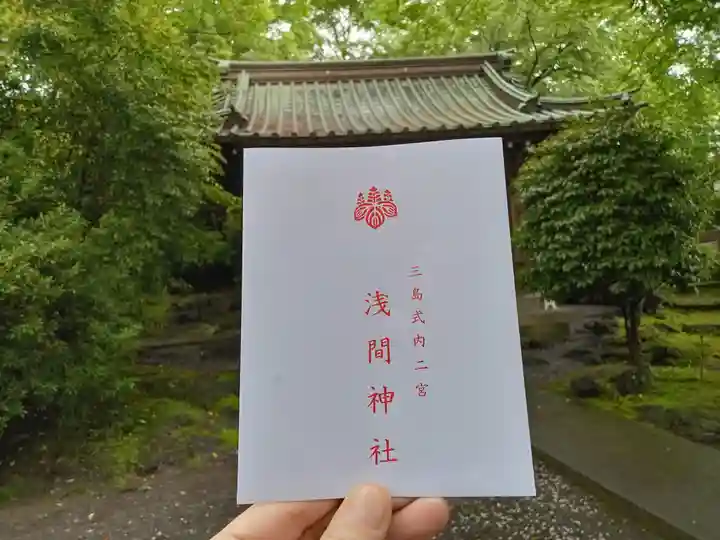 三島式内二宮
浅間神社